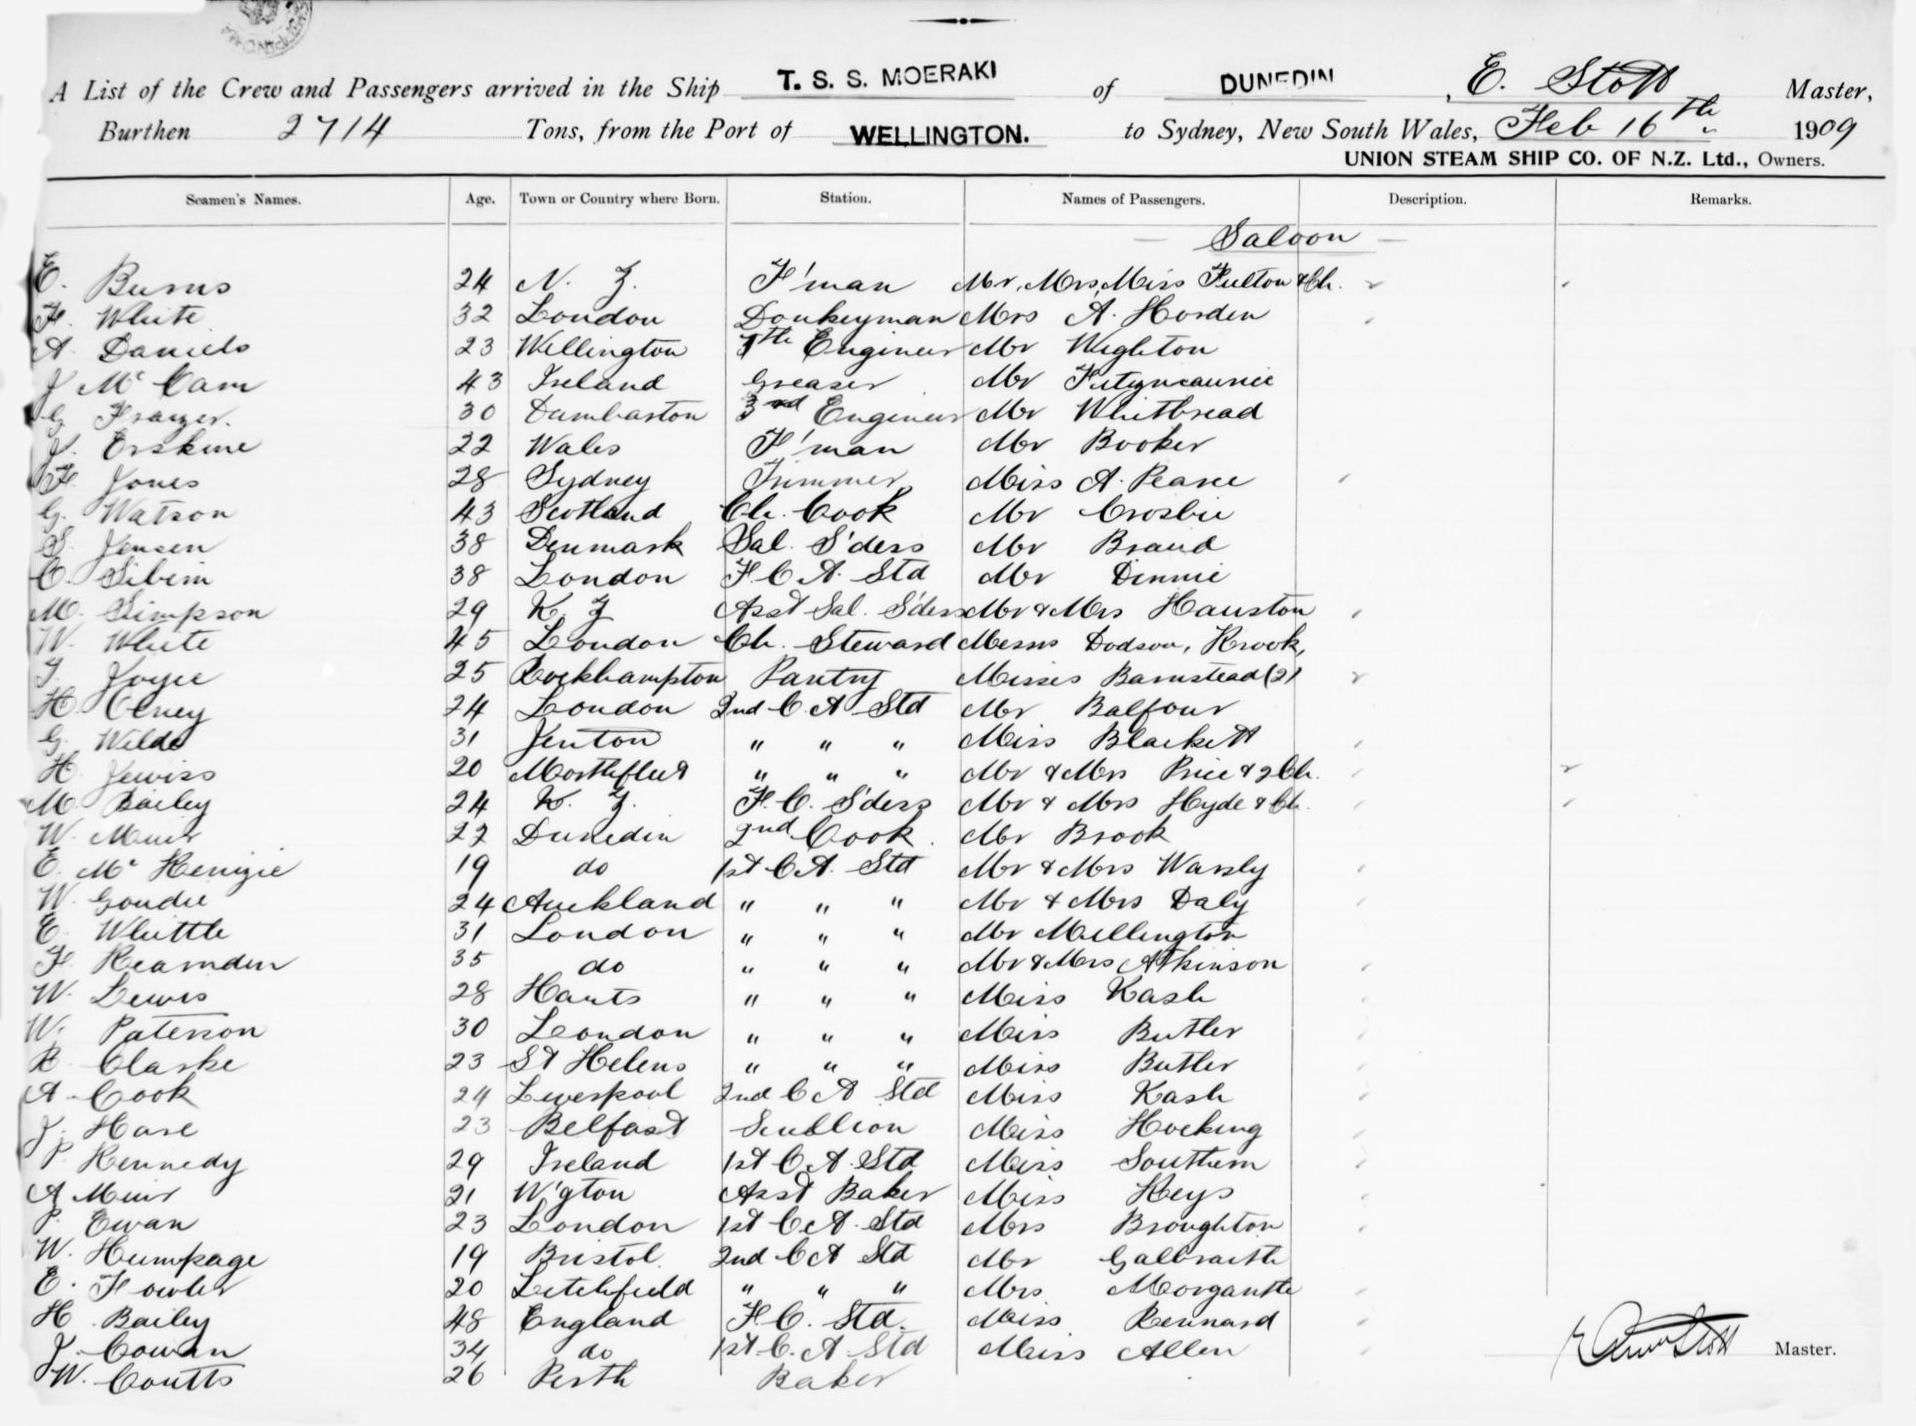 A List of the Crew and Passengers arrived in the Ship T. S. S. MOERAKI of DUNEDIN, E. Stott Master,
Burthen 2714 Tons, from the Port of WELLINGTON. to Sydney, New South Wales, Feb 16th 1909
UNION STEAM SHIP CO. OF N.Z. Ltd., Owners.
Seamen's Names. Age. Town or Country where Born. Station. Names of Passengers. Description. Remarks.
Saloon
E. Burns 24 N. Z. F'man Mr, Mrs, Miss Fulton & Ch.
F. White 32 London Donkeyman Mrs A. Horden
A. Daniels 23 Wellington 7th Engineer Mr Wighton
J McCam 43 Ireland Greaser Mr
G Frazer. 30 Dumbarton 3rd Engineer Mr Whitbread
J. Erskine 22 Wales F'man Mr Booker
Jones 28 Sydney Trimmer Miss A. Pearce
G. Watson 43 Scotland Ch. Cook Mr Crosbie
S. Jensen 38 Denmark Sal. S'ders Mr Braud
C. 38 London F. C. A. Std Mr Dinnie
M. Simpson 29 N. Z Asst Sal. S'ders Mr & Mrs Hauston
W. White 45 London Ch. Steward Messrs Dodson, Krook,
T. Joyce 25 Rockhampton Pantry Misses Barnstead (2)
H. Olney 24 London 2nd C. A Std Mr Balfour
G. Wilde 31 Yenton " " " Miss Blackett
H. Jewiss 20 Northfleet " " " Mr & Mrs Price & 2 Ch.
M. Bailey 24 N. Z. F. C. S'ders Mr & Mrs Hyde & Ch.
W. Muir 22 Dunedin 2nd Cook. Mr Brook
E. McKenzie 19 do 1st C. A. Std Mr & Mrs Warsly
W. Goudie 24 Auckland " " " Mr & Mrs Daly
E. Whittle 31 London " " " Mr Mellington
F. Hearnden 35 do " " " Mr & Mrs Atkinson
W. Lewis 28 Hants " " " Miss Kash
W. Paterson 30 London " " " Miss Butler
R. Clarke 23 St Helens " " " Miss Butler
A. Cook 24 Liverpool 2nd C A Std Miss Kash
J. Hare 23 Belfast Scullion Miss Hocking
P. Kennedy 29 Ireland 1st C. A. Std Miss Southern
A Muir 21 W'gton Asst Baker Miss Keys
P. Ewan 23 London 1st C. A. Std Mrs Broughton
W. Humpage 19 Bristol. 2nd C A Std Mr Galbraith
E. Fowler 20 Litchfield " " " Mrs Morganthe
H. Bailey 48 England F. C. Std. Miss Rennard
J. Cowan 34 do 1st C. A Std Miss Allen
W. Coutts 26 Perth Baker
Master.